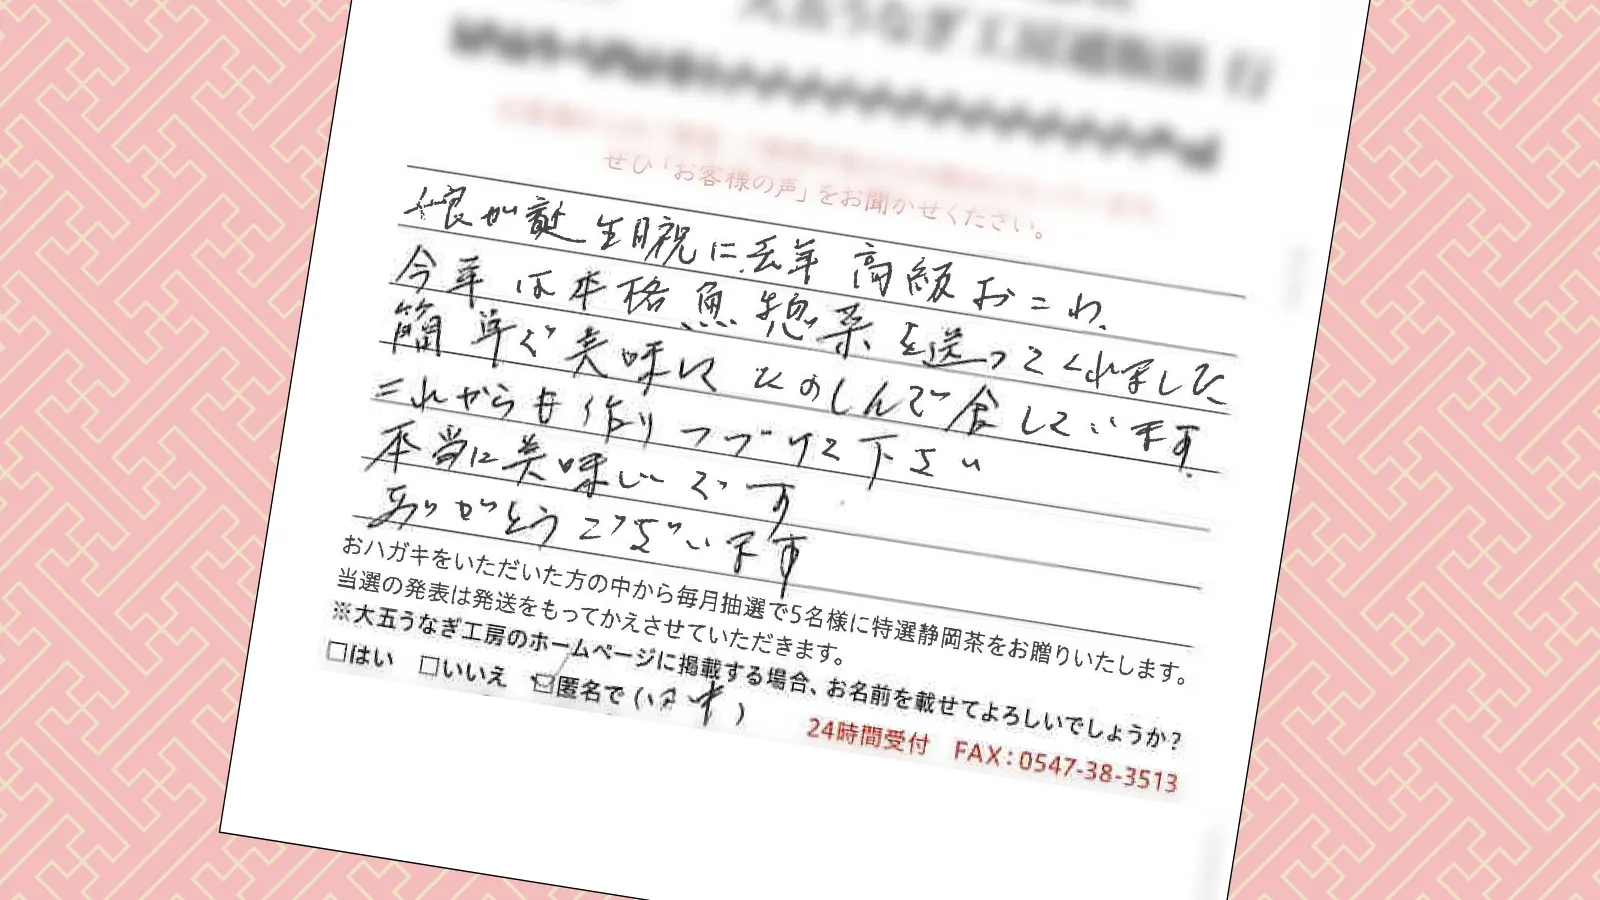 大五うなぎ工房通販係 行
ぜひ「お客様の声」をお聞かせください。
娘が誕生日祝に去年 高級おこわ
今年は本格魚惣菜を送ってくれました
簡単で美味しくたのしんで食しています。
これからも作りつづけて下さい
本当に美味しいです
ありがとうございます
おハガキをいただいた方の中から毎月抽選で5名様に特選静岡茶をお贈りいたします。
当選の発表は発送をもってかえさせていただきます。
※大五うなぎ工房のホームページに掲載する場合、お名前を載せてよろしいでしょうか?
□はい □いいえ ☑匿名で( )
24時間受付 FAX:0547-38-3513